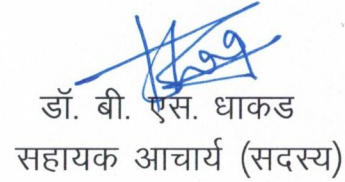 डॉ. बी. एस. धाकड
सहायक आचार्य (सदस्य)